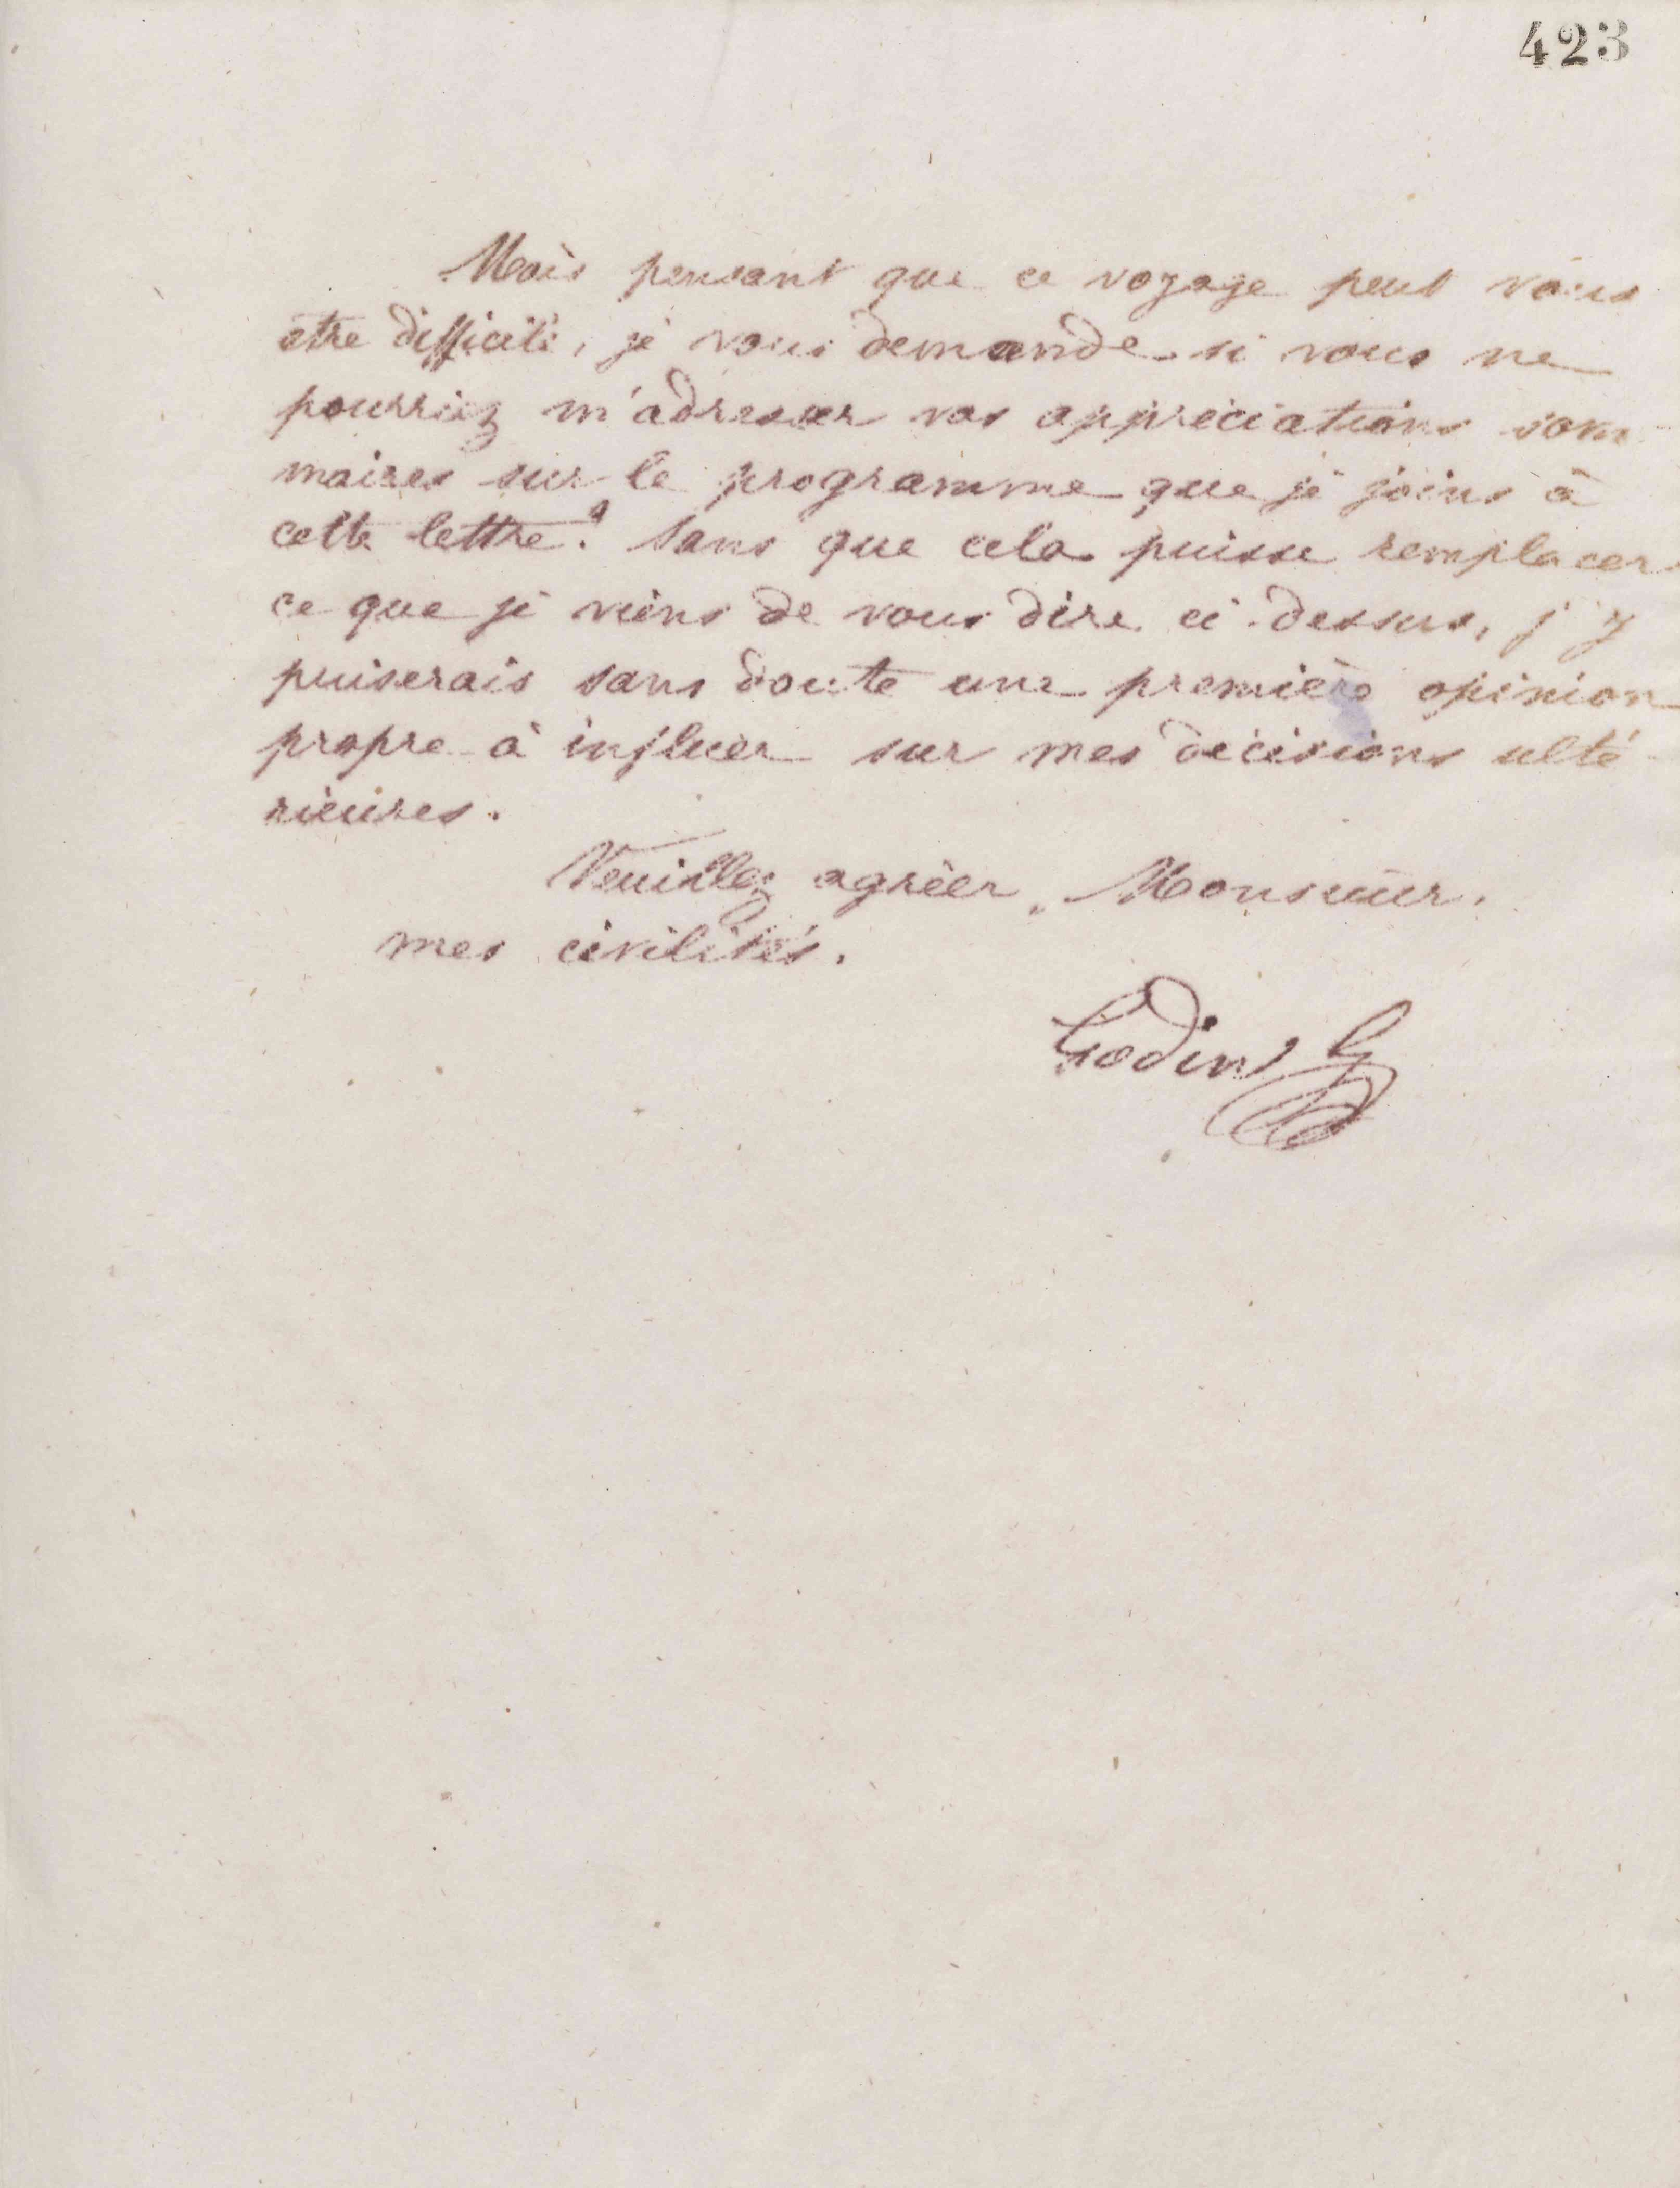 423
Mais pensant que ce voyage peut vous
être difficile, je vous demande si vous ne
pourriez m'adresser vos appréciations som-
maires sur le programme que je joins à
cette lettre? Sans que cela puisse remplacer
ce que je viens de vous dire ci-dessus, j'y
puiserais sans doute une première opinion
propre à influer sur mes décisions ulté-
rieures.
Veuillez agréer, Monsieur,
mes civilités.
Godin